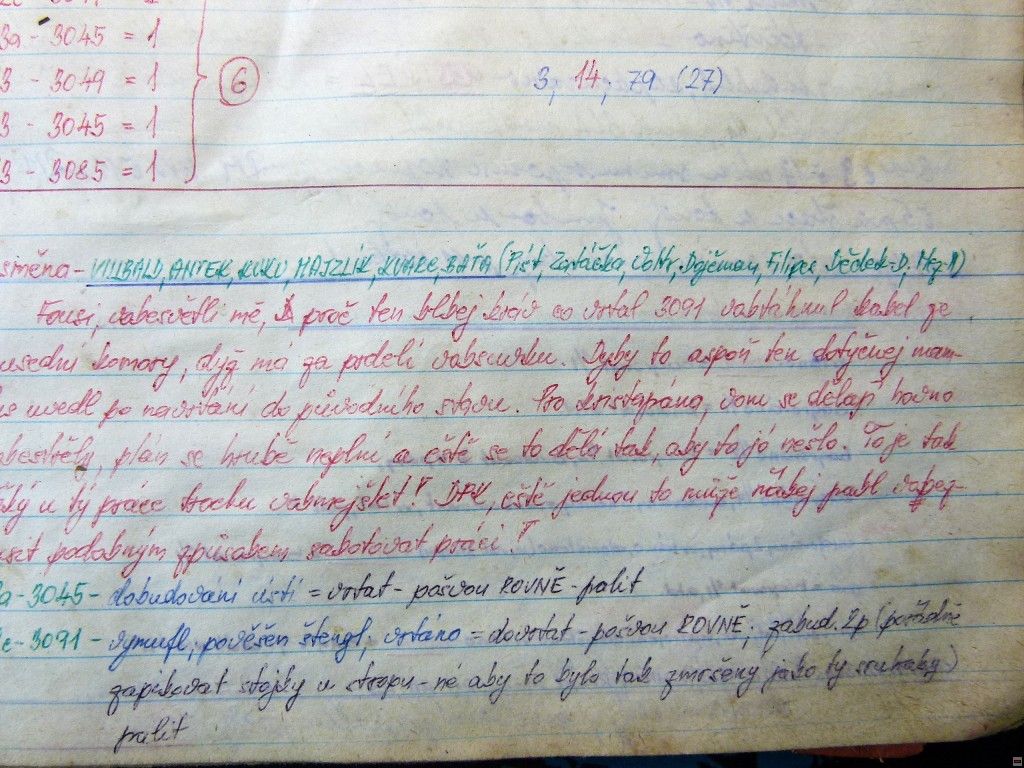 3a - 3045 = 1
3 - 3049 = 1
3 - 3045 = 1
3 - 3085 = 1
6
3, 14, 79 (27)
směna - VILIBALD, ANTEK, KUKU, MAJZLÍK, KVAKE, BAŤA (Pišt, Zatáčka, Filipec, Dědek-D,
Fousi, vobesvětli mě, proč ten blbej kráv co vrtal 3091 vobtáhnul kabel ze
usední komory, dyž má za prdelí vobscurku. Dyby to aspoň ten dotyčnej mam-
uvedl po navrtání do původního stavu. Pro kristapána, vono se dělají hovno
plán se hrubě neplní a eště se to dělá tak, aby to jó nešlo. To je tak
žký u tý práce trochu vobmejšlet? DPK, eště jednou to může nákej pabl
podobným způsobem sabotovat práci?
a-3045 - dobudování ústí = vrtat - pošvou ROVNĚ - palit
c-3091 - pověšen štengl, vrtáno = dovrtat - pošvou ROVNĚ, zabud. 2p (pořádně
zapíchovat stojky u stropu - né aby to bylo tak zmršený jako ty
palit